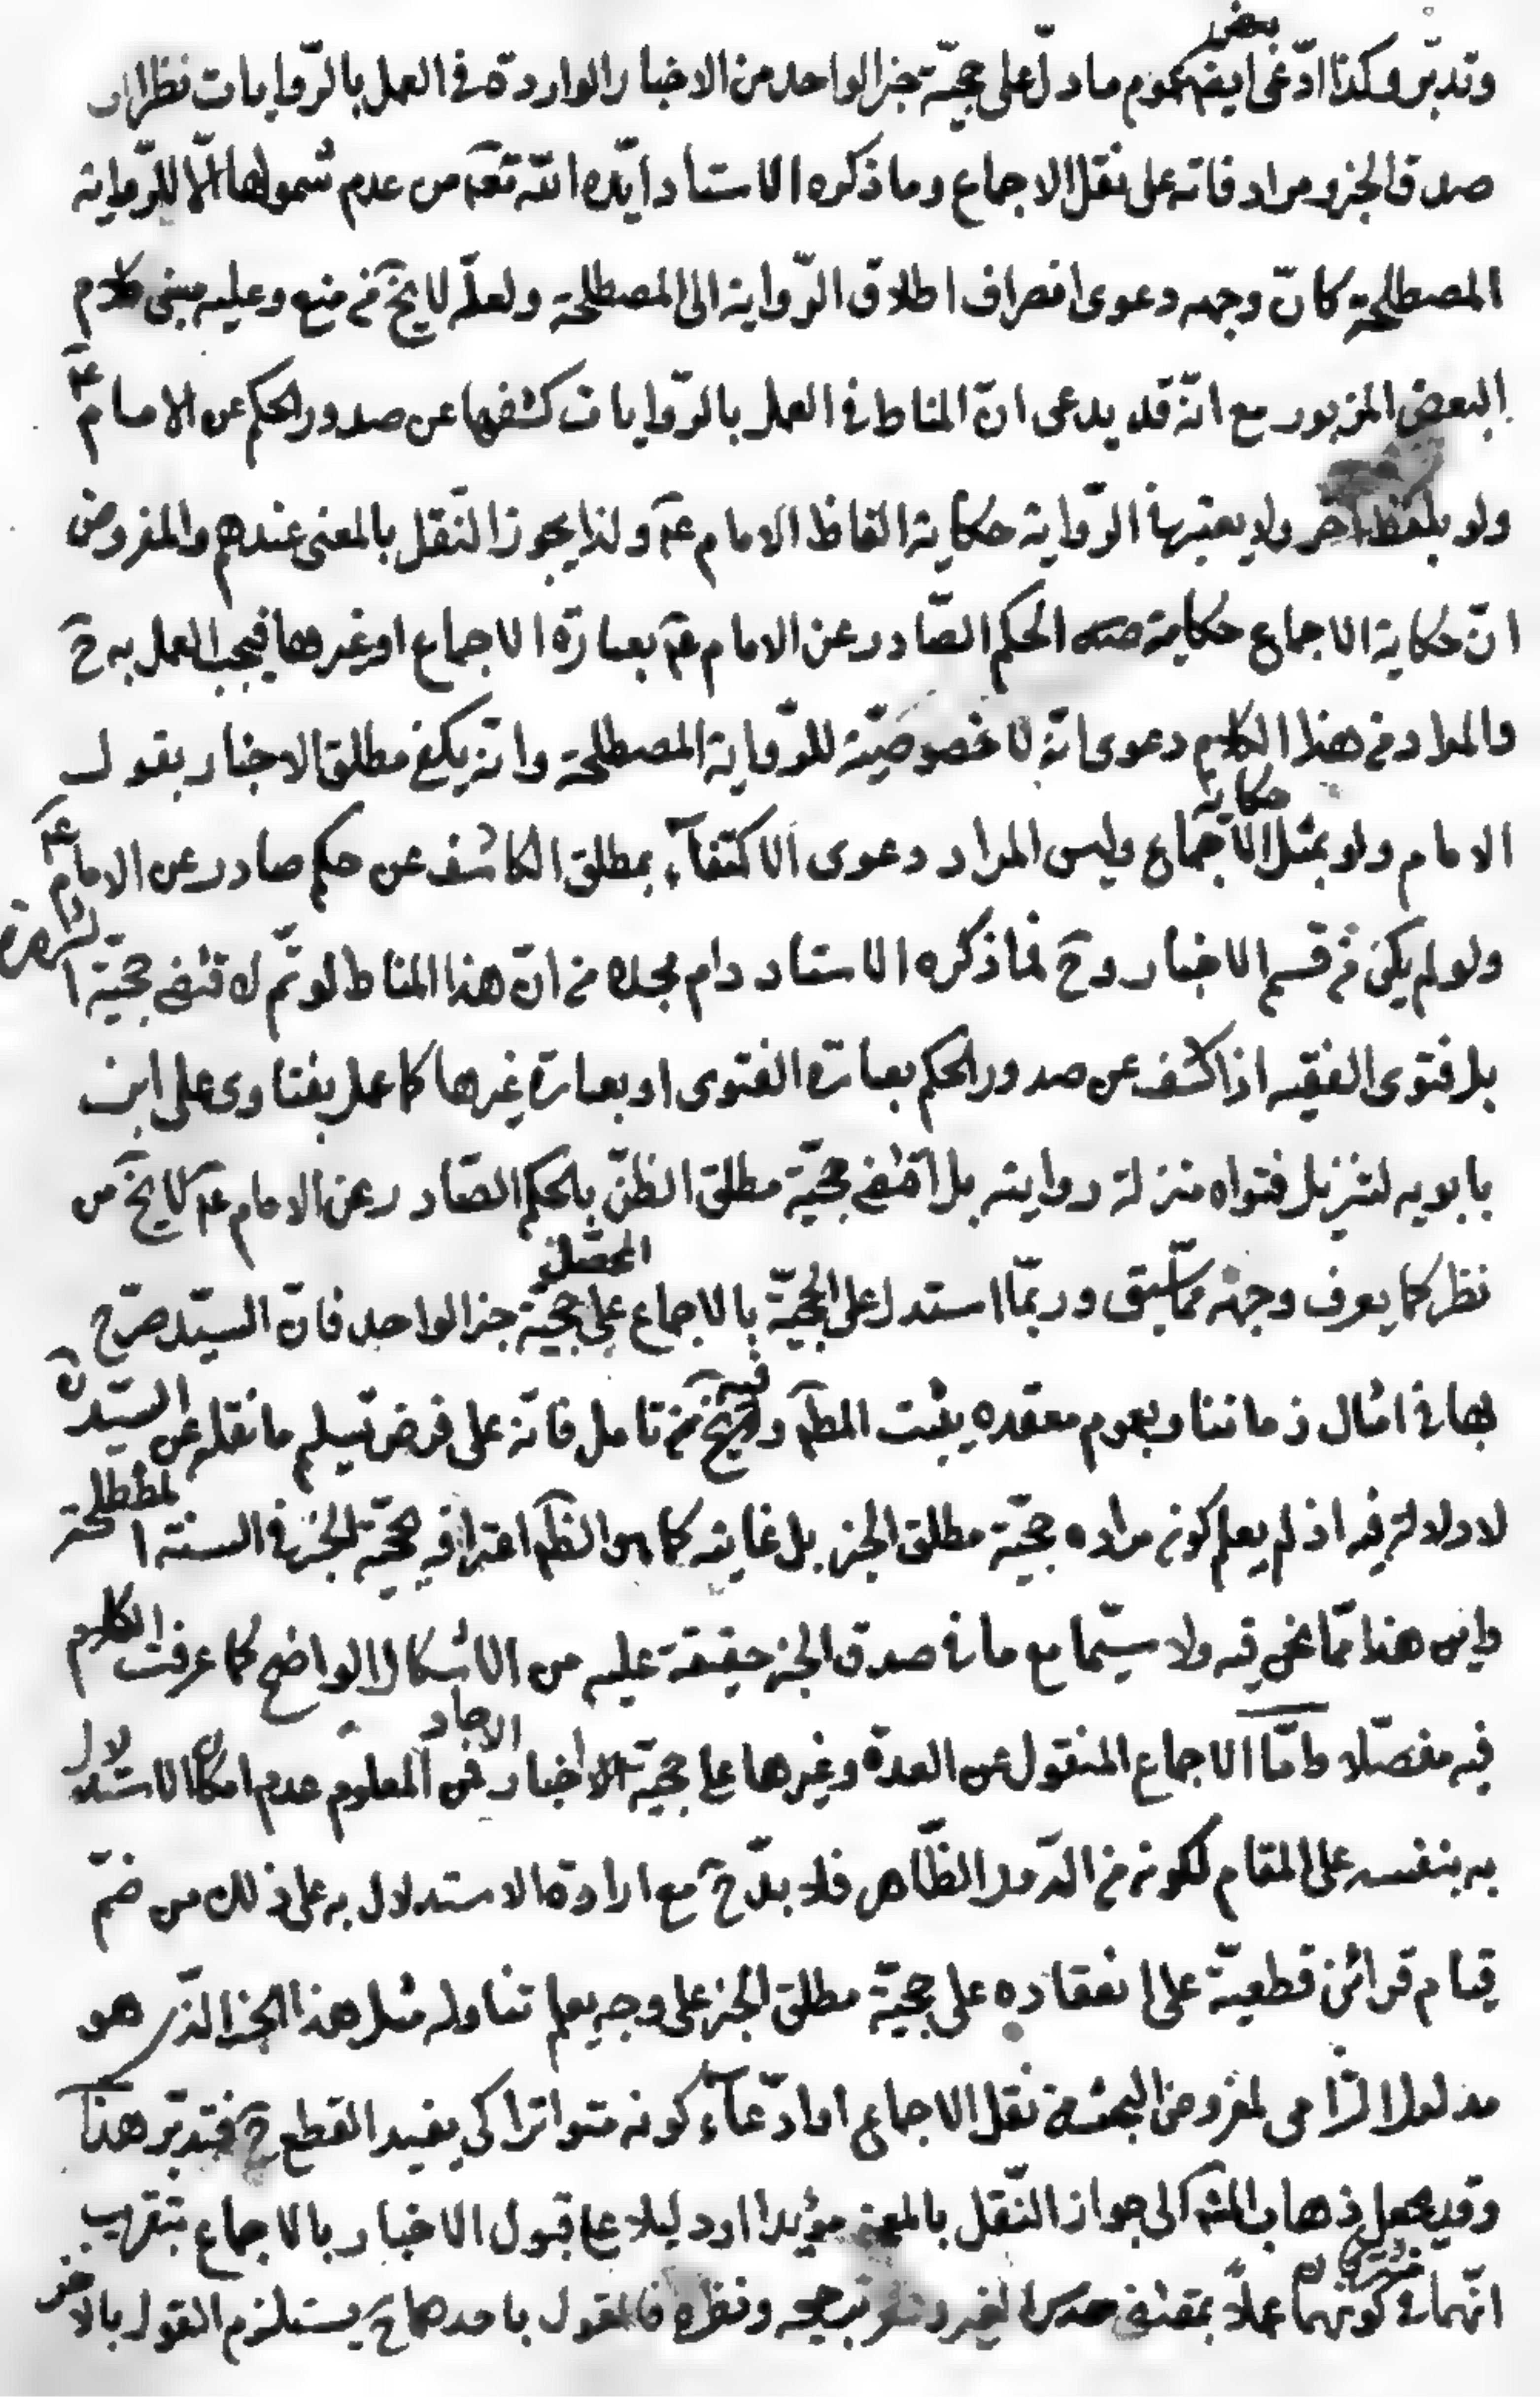 وتدبّر وكذا ادّعى بعض ايضا عموم ما دلّ على حجيّة خبر الواحد من الاخبار الواردة فى العمل بالرّوايات نظرا الى
صدق الخبر ومرادفاته على نقل الاجماع وما ذكره الاستاد ايّده اللّه تعه من عدم شمولها الّا للرّواية
المصطلحة كانّ وجهه دعوى انصراف اطلاق الرّواية الى المصطلحة ولعلّه لا يخ من منع وعليه مبنى كلام
البعض المزبور مع انّه قد يدعى انّ المناط فى العمل بالرّوايات كشفها عن صدور الحكم عن الامام عم
ولو بلفظ اخر ولا يعتبر فى الرّواية حكاية الفاظ الامام عم ولذا يجوز النّقل بالمعنى عندهم والمفروض
انّ حكاية الاجماع حكاية الحكم الصّادر عن الامام عم بعبارة الاجماع او غيرها فيجب العمل به ح
والمراد من هذا الكلام دعوى انّه لا خصوصيّة للرّواية المصطلحة وانّه يكفى مطلق الاخبار بقول
الامام ولو بمثل حكاية الاجماع وليس المراد دعوى الاكتفاء بمطلق الكاشف عن حكم صادر عن الامام عم
ولو لم يكن من قسم الاخبار وح فما ذكره الاستاد دام مجده من انّ هذا المناط لو تمّ لاقتضى حجيّة الشهرة
بل فتوى الفقيه اذا كشف عن صدور الحكم بعبارة الفتوى او بعبارة غيرها كما عمل بفتاوى على ابن
بابويه لتنزيل فتواه منزلة روايته بل اقتضى حجيّة مطلق الظنّ بالحكم الصّادر عن الامام عم لا يخ من
نظر كما يعرف وجهه ممّا سبق وربّما استدل على الحجيّة بالاجماع المحصّل على حجيّة خبر الواحد فانّ السيّد صرّح
بها فى امثال زماننا وبعموم معقده يثبت المطم وفيه لا يخ من تامل فانّه على فرض تسليم ما نقله عن السيّد ره
لا دلالة فيه اذ لم يعلم كونه مراده حجيّة مطلق الخبر بل غايته كما هو الظم اعترافه بحجيّة الخبر فى السنة المصطلحة
واين هذا ممّا نحن فيه ولا سيّما مع ما فى صدق الخبر حقيقة عليه من الاشكال الواضح كما عرفت الكلام
فيه مفصّلا وامّا الاجماع المنقول عن العدة وغيرها على حجيّة الاخبار الاحاد فمن المعلوم عدم امكان الاستدلال
به بنفسه على المقام لكونه من الدّور الظّاهر فلا بدّ ح مع ارادة الاستدلال به على ذلك من ضمّ
قيام قرائن قطعيّة على انعقاده على حجيّة مطلق الخبر على وجه يعلم تناوله مثل هذا الخبر الّذى هو
مدلول التزامى لمفروض البحث من نقل الاجماع او ادّعاء كونه متواترا كى يفيد القطع ح فتدبّر هذا
وقد يجعل ذهاب المشه الى جواز النّقل بالمعنى مؤيدا او دليلا على قبول الاخبار بالاجماع بتقريب
انّهما مشتركان فى كونهما عملا بمقتضى حدس الغير وترجيحه ونظره فالقول باحدهما ح يستلزم القول بالاخر